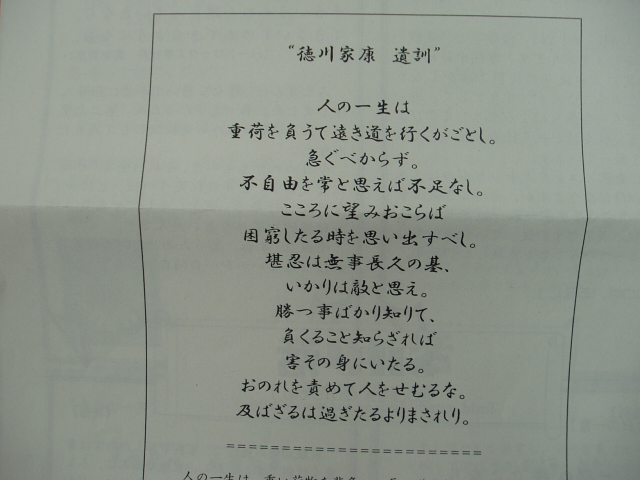 “徳川家康 遺訓”
人の一生は
重荷を負うて遠き道を行くがごとし。
急ぐべからず。
不自由を常と思えば不足なし。
こころに望みおこらば
困窮したる時を思い出すべし。
堪忍は無事長久の基、
いかりは敵と思え。
勝つ事ばかり知りて、
負くること知らざれば
害その身にいたる。
おのれを責めて人をせむるな。
及ばざるは過ぎたるよりまされり。
===========================
人の一生は、重い荷物を背負